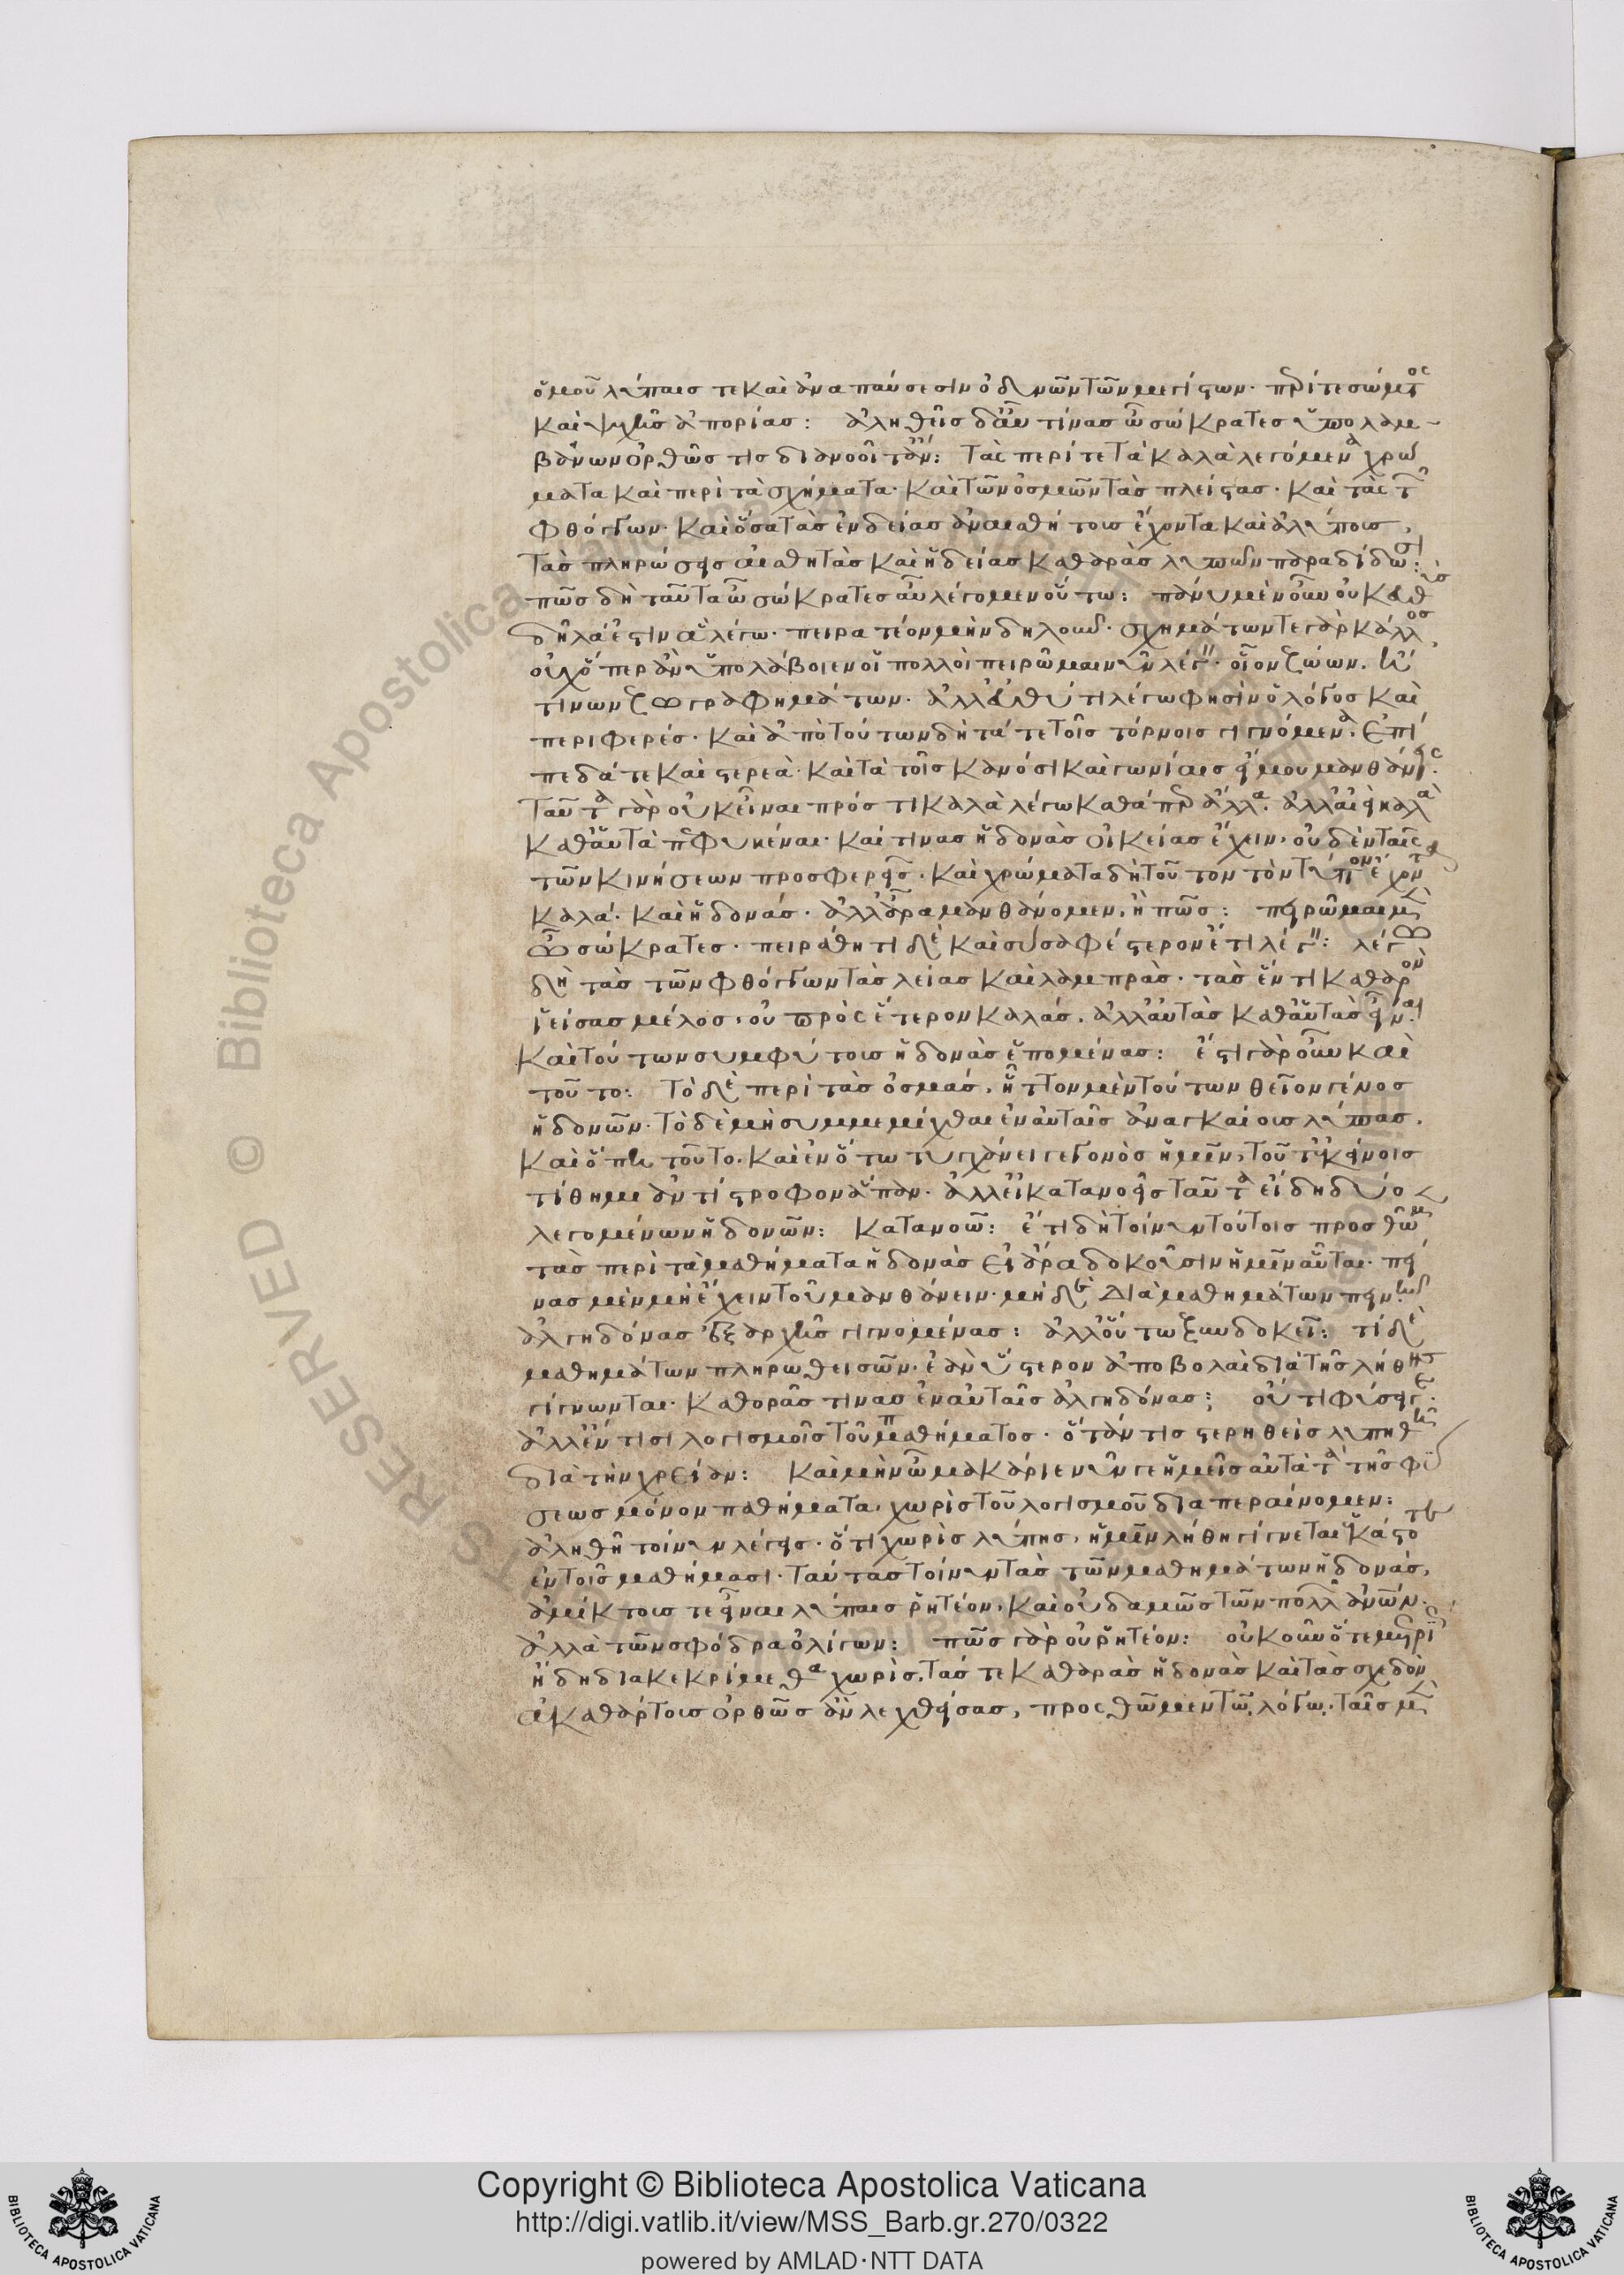 ὁμοῦ λύπαις τε καὶ ἀναπαύσεσιν ὀδυνῶν τῶν μεγίστων. περί τε σώματος
καὶ ψυχῆς ἀπορίας: ἀληθεῖς δ' αὖ τίνας ὦ σώκρατες ὑπολαμ-
βάνων ὀρθῶς τις διανοοῖτ' ἄν: Τὰς περί τε τὰ καλὰ λεγόμενα χρώ
ματα καὶ περὶ τὰ σχήματα. καὶ τῶν ὀσμῶν τὰς πλείστας. καὶ τὰς τῶν
φθόγγων. καὶ ὅσα τὰς ἐνδείας ἀναισθήτους ἔχοντα καὶ ἀλύπους,
τὰς πληρώσεις αἰσθητὰς καὶ ἡδείας καθαρὰς λυπῶν παραδίδωσι:
πῶς δὴ ταῦτα ὦ σώκρατες αὖ λέγομεν οὕτω: πάνυ μὲν οὖν οὐκ εὐθὺς
δῆλά ἐστιν ἃ λέγω. πειρατέον μὴν δηλοῦν. σχημάτων τε γὰρ κάλλος,
οὐχ ὅπερ ἂν ὑπολάβοιεν οἱ πολλοὶ πειρῶμαι νῦν λέγειν. οἷον ζώων. ἤ
τινων ζωγραφημάτων. ἀλλ' εὐθύ τι λέγω φησὶν ὁ λόγος καὶ
περιφερές. καὶ ἀπὸ τούτων δὴ τά τε τοῖς τόρνοις γιγνόμενα. ἐπί
πεδά τε καὶ στερεὰ. καὶ τὰ τοῖς κανόσι καὶ γωνίαις εἴ μου μανθάνεις.
ταῦτα γὰρ οὐκ εἶναι πρός τι καλὰ λέγω καθάπερ ἄλλα. ἀλλ' ἀεὶ καλὰ
καθ' αὑτὰ πεφυκέναι. καί τινας ἡδονὰς οἰκείας ἔχειν, οὐδὲν ταῖς
τῶν κινήσεων προσφερεῖς. καὶ χρώματα δὴ τοῦτον τὸν τύπον ἔχοντα
καλά. καὶ ἡδονάς. ἀλλ' ἆρα μανθάνομεν, ἢ πῶς: πειρῶμαι μὲν
ὦ σώκρατες. πειράθητι δὲ καὶ σὺ σαφέστερον ἔτι λέγειν: λέγω
δὴ τὰς τῶν φθόγγων τὰς λείας καὶ λαμπρὰς. τὰς ἕν τι καθαρὸν
ἱείσας μέλος, οὐ πρὸς ἕτερον καλάς. ἀλλ' αὐτὰς καθ' αὑτὰς εἶναι.
καὶ τούτων συμφύτους ἡδονὰς ἑπομένας: ἔστι γὰρ οὖν καὶ
τοῦτο: Τὸ δὲ περὶ τὰς ὀσμάς, ἧττον μὲν τούτων θεῖον γένος
ἡδονῶν. τὸ δὲ μὴ συμμεμίχθαι ἐν αὐταῖς ἀναγκαίους λύπας,
καὶ ὅπη τοῦτο. καὶ ἐν ὅτω τυγχάνει γεγονὸς ἡμῖν, τοῦτ' ἐκείνοις
τίθημι ἀντίστροφον ἅπαν. ἀλλ' εἰ κατανοεῖς ταῦτα εἴδη δύο
λεγομένων ἡδονῶν: κατανοῶ: ἔτι δὴ τοίνυν τούτοις προσθῶμεν
τὰς περὶ τὰ μαθήματα ἡδονὰς εἰ ἄρα δοκοῦσιν ἡμῖν αὗται. πεί
νας μὲν μὴ ἔχειν τοῦ μανθάνειν. μηδὲ διὰ μαθημάτων πείνην
ἀλγηδόνας ἐξ ἀρχῆς γιγνομένας: ἀλλ' οὕτω ξυνδοκεῖ: τί δὲ
μαθημάτων πληρωθεισῶν. ἐὰν ὕστερον ἀποβολαὶ διὰ τῆς λήθης
γίγνωνται. καθορᾶς τινας ἐν αὐταῖς ἀλγηδόνας; οὔ τι φύσει γε.
ἀλλ' ἔν τισι λογισμοῖς τοῦ παθήματος. ὅταν τις στερηθεὶς λυπηθῆ
διὰ τὴν χρείαν: καὶ μὴν ὦ μακάριε νῦν γε ἡμεῖς αὐτὰ τὰ τῆς φύ
σεως μόνον παθήματα, χωρὶς τοῦ λογισμοῦ διαπεραίνομεν:
ἀληθῆ τοίνυν λέγεις. ὅτι χωρὶς λύπης, ἡμῖν λήθη γίγνεται ἑκάστοτε
ἐν τοῖς μαθήμασι. ταύτας τοίνυν τὰς τῶν μαθημάτων ἡδονὰς,
ἀμίκτους τε εἶναι λύπαις ῥητέον, καὶ οὐδαμῶς τῶν πολλῶν ἀνθρώπων.
ἀλλὰ τῶν σφόδρα ὀλίγων: πῶς γὰρ οὐ ῥητέον: οὐκοῦν ὅτε μετρίως
ἤδη διακεκρίμεθα χωρὶς, τάς τε καθαρὰς ἡδονὰς καὶ τὰς σχεδὸν
ἀκαθάρτους ὀρθῶς ἂν λεχθείσας, προσθῶμεν τῶ λόγω. ταῖς μὲν
Copyright © Biblioteca Apostolica Vaticana
http://digi.vatlib.it/view/MSS_Barb.gr.270/0322
powered by AMLAD·NTT DATA